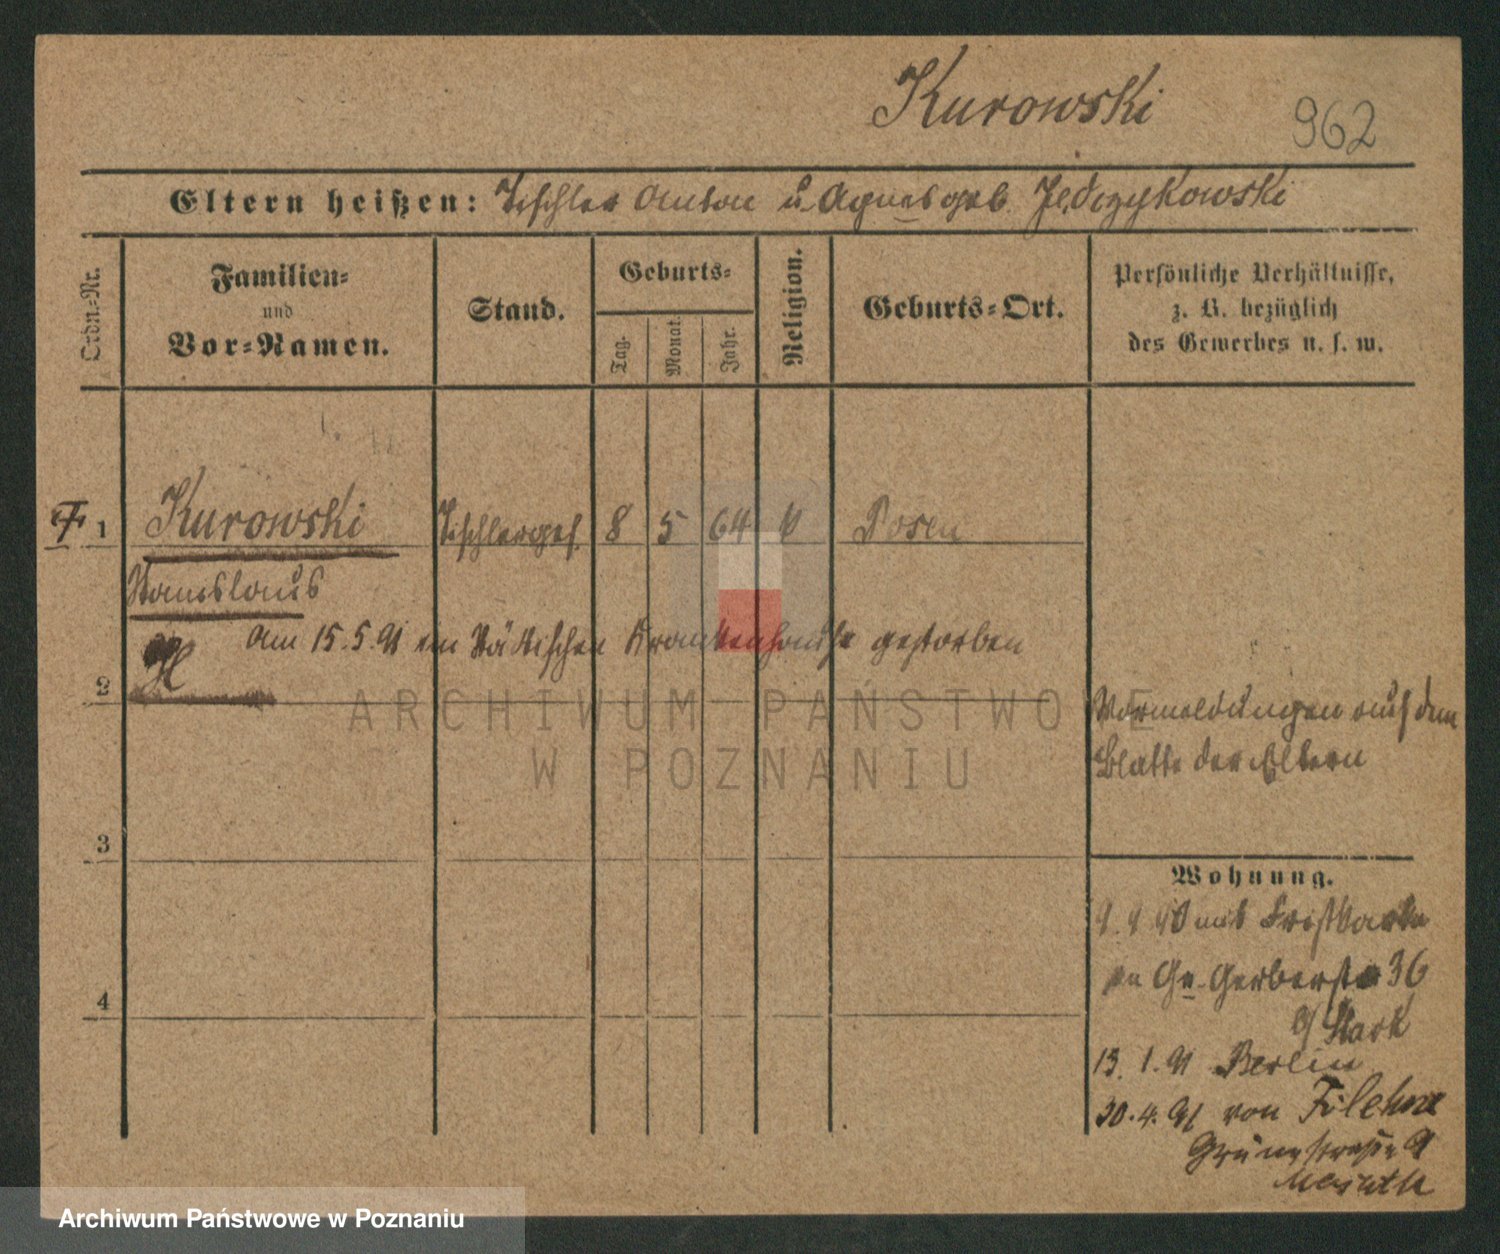 Kurowski
962
Eltern heißen: Tischler Anton u. Agnes geb. Jędrzykowski
Ordn.-Nr.
Familien-
und
Vor-Namen.
Stand.
Geburts-
Tag.
Monat.
Jahr.
Religion.
Geburts-Ort.
Persönliche Verhältnisse,
z. B. bezüglich
des Gewerbes u. s. w.
1 Kurowski Tischlerges. 8 5 64 k Posen
Stanislaus
am 15.5.91 im Städtischen Krankenhause gestorben
2
Vormeldungen auf dem
Blatte der Eltern
3
4
Wohnung.
Gr. Gerberstr 36
b/ Stark
13. 1. 91 Berlin
30. 4. 91 von Filehne
Grünestraße 9
ARCHIWUM PAŃSTWOWE
W POZNANIU
Archiwum Państwowe w Poznaniu